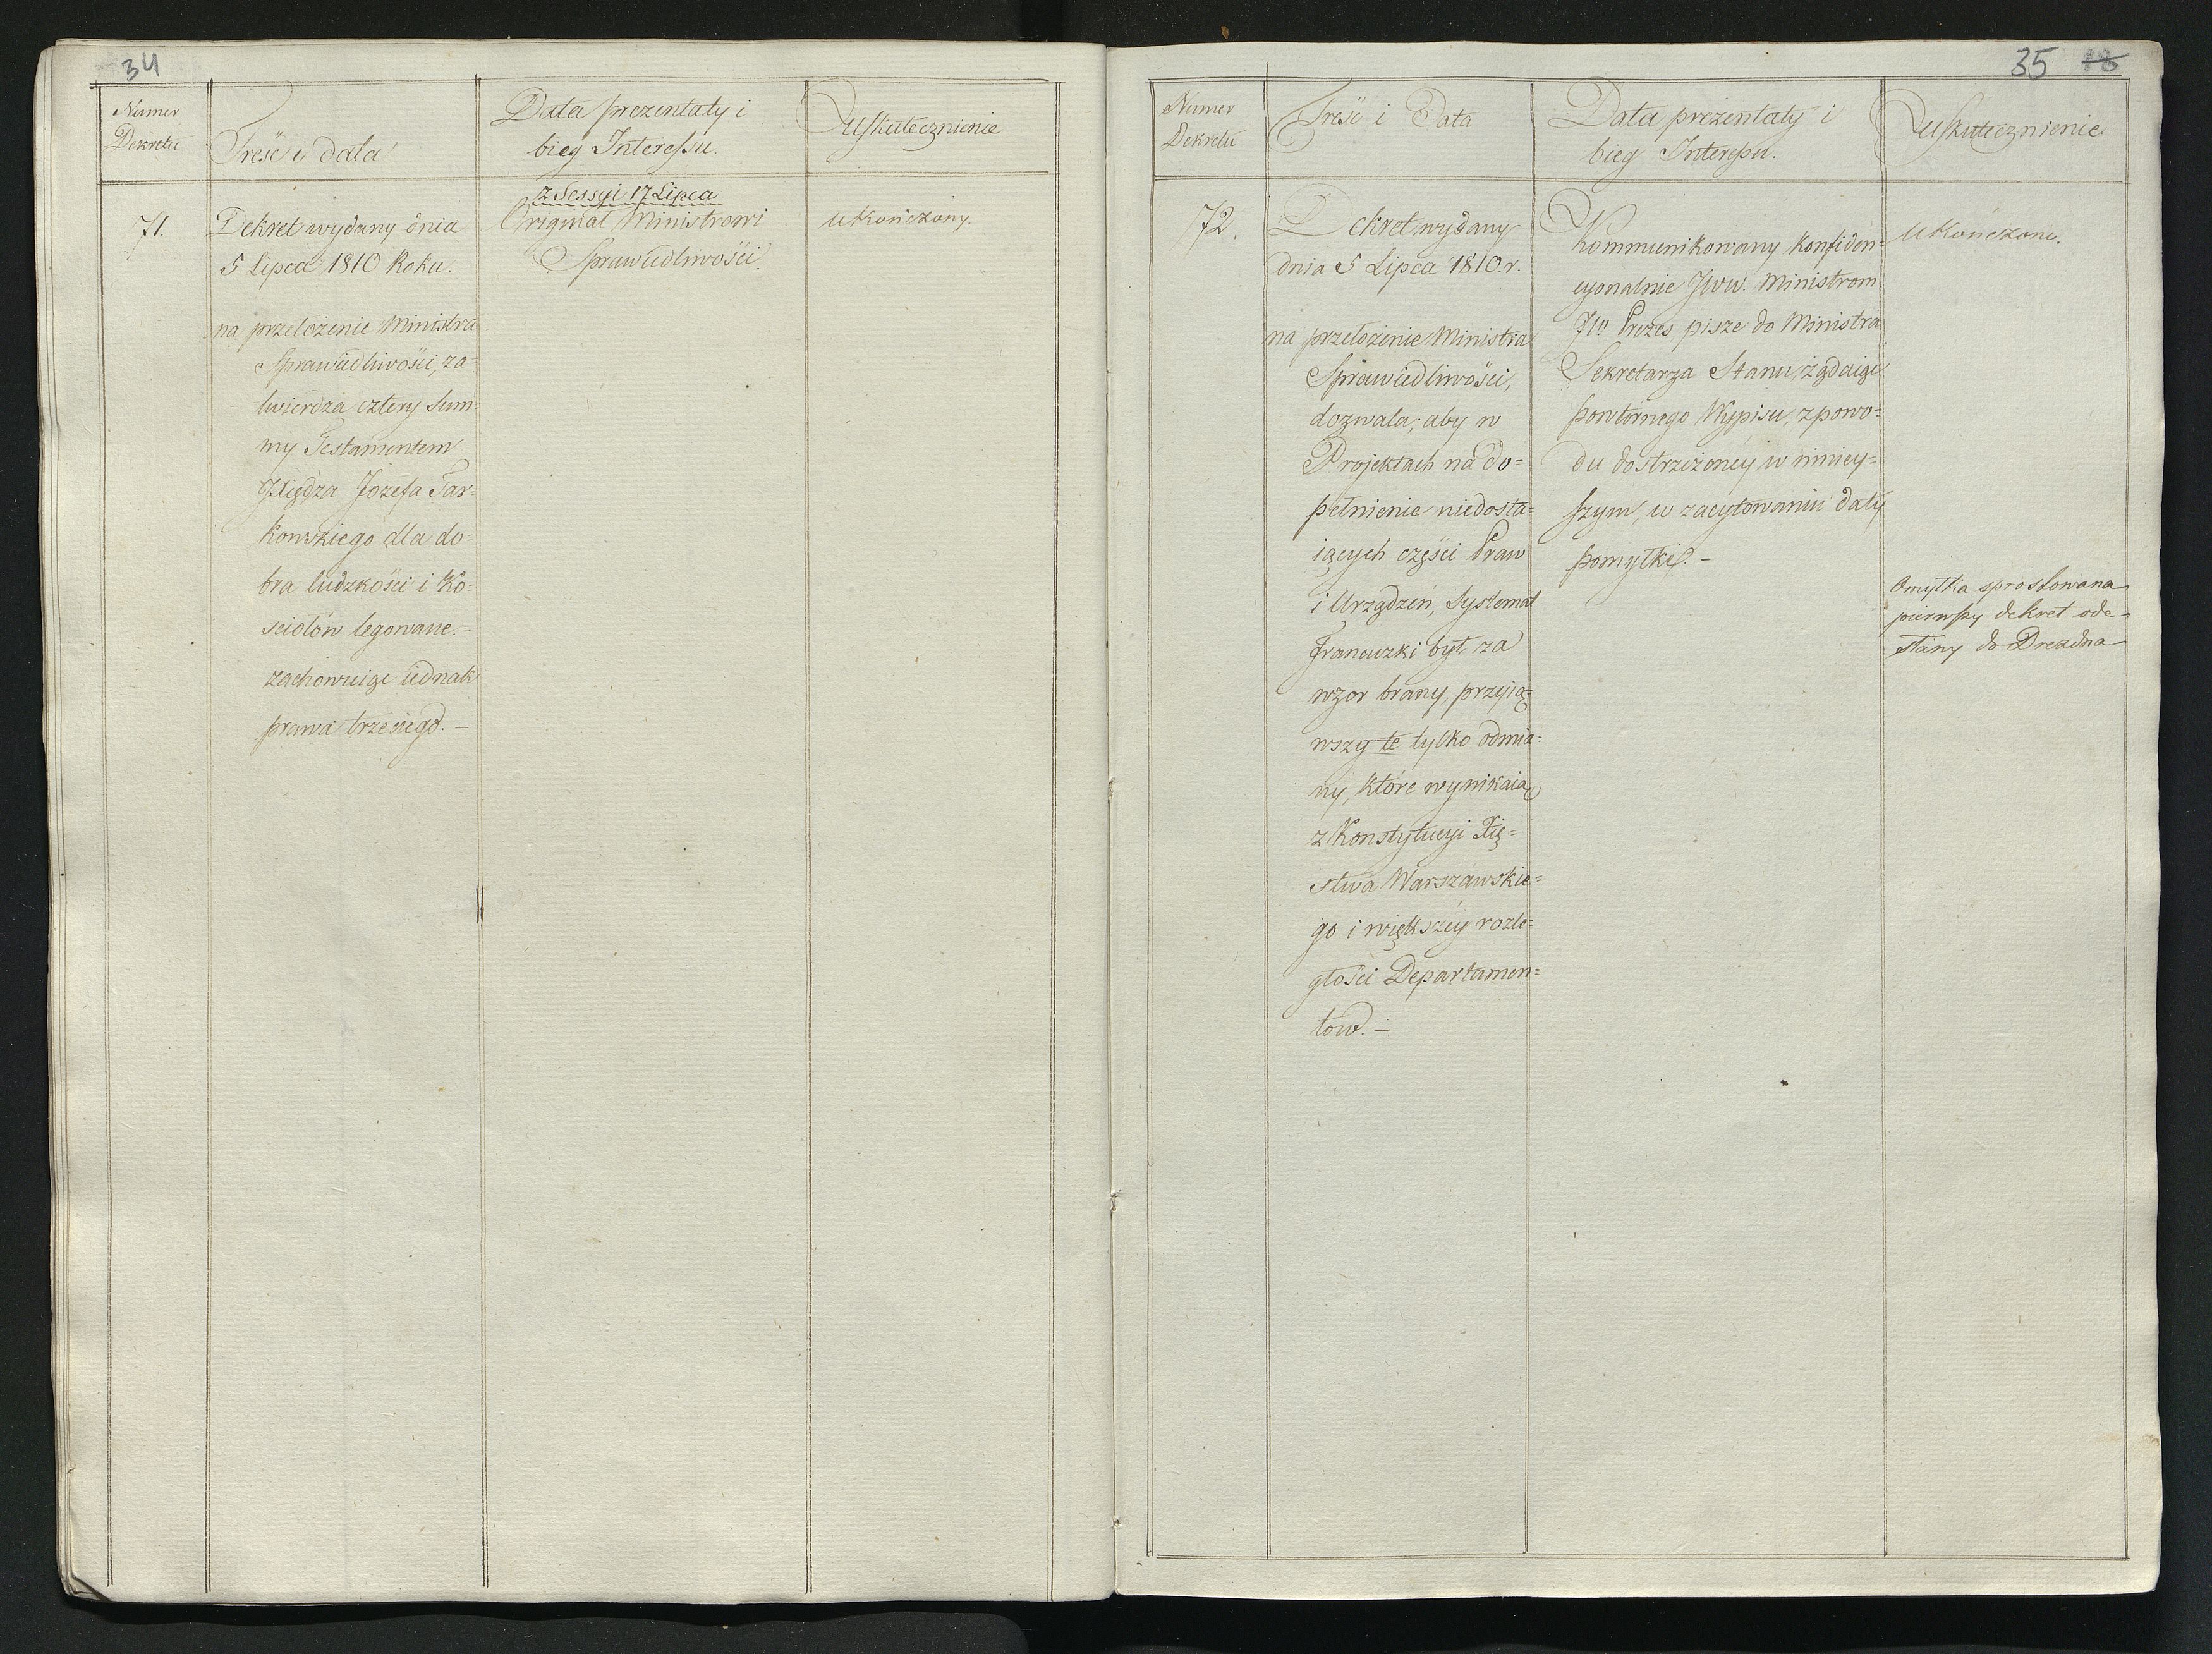 34
Numer
Dekretu
Treść i data
Data prezentaty i
bieg Interessu.
Uskutecznienie
71.
Dekret wydany dnia
5 Lipca 1810 Roku.
na przełożenie Ministra
Sprawiedliwości, za=
twierdza cztery Sum=
my Testamentem
Xiędza Jozefa Tar=
kowskiego dla do=
bra ludzkości i Ko=
sciołów legowane.=
zachowuiąc iednak
prawa trzeciego. —
z Sessyi 17 Lipca
Originał Ministrowi
Sprawiedliwości.
Ukończony.
35 18
Numer
Dekretu
Treść i Data
Data prezentaty i
bieg Interessu.
Uskutecznienie
72.
Dekret wydany
dnia 5 Lipca 1810. r.
na przełożenie Ministra
Sprawiedliwości,
dozwala, aby w
Projektach na do=
pełnienie niedosta=
iących części Praw
i Urządzeń, Systemat
Francuzki był za
wzor brany, przyią=
wszy te tylko odmia=
ny, które wynikaią
z Konstytucyi Xię=
stwa Warszawskie=
go i większey rozle=
głości Departamen=
tow. —
Kommunikowany konfiden=
cyonalnie JWW. Ministrom
Prezes pisze do Ministra
Sekretarza Stanu, żądaiąc
powtórnego Wypisu, z powo=
du dostrzeżoney w niniey=
szym, w zacytowaniu daty
pomyłki. —
Ukończone.
Omyłka sprostowana
pierwszy dekret ode=
słany do Drezdna